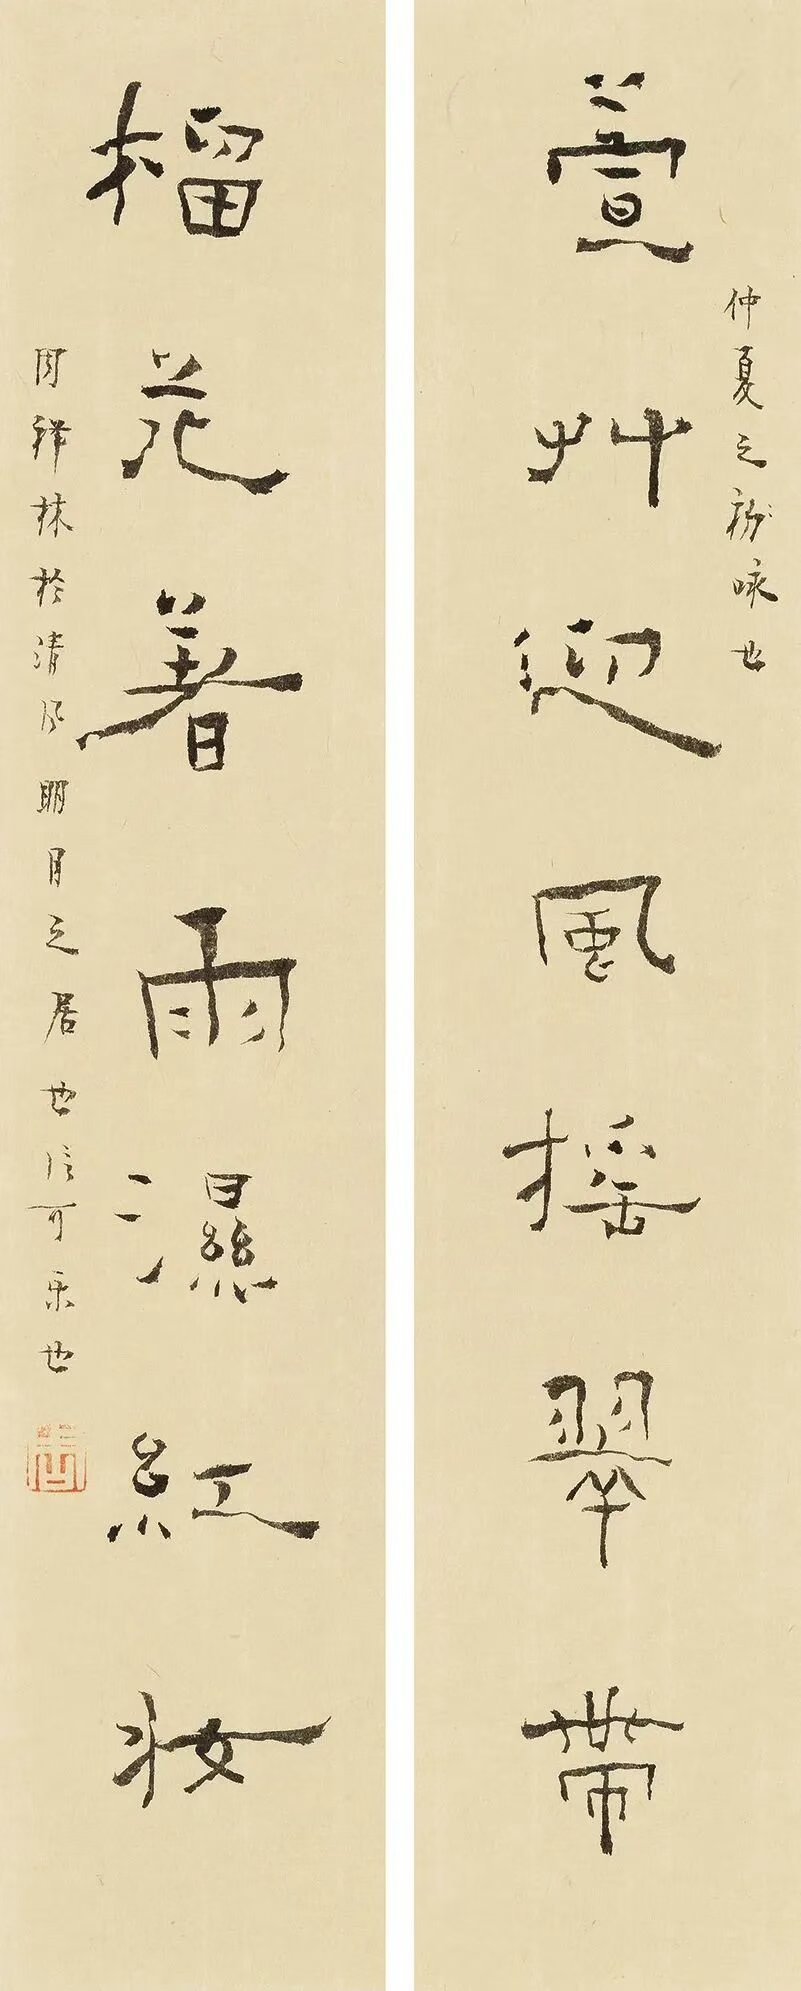 萱艸迎風摇翠帶
仲夏之初咏也
榴花著雨濕紅妝
周祥林於清風明月之居也信可樂也